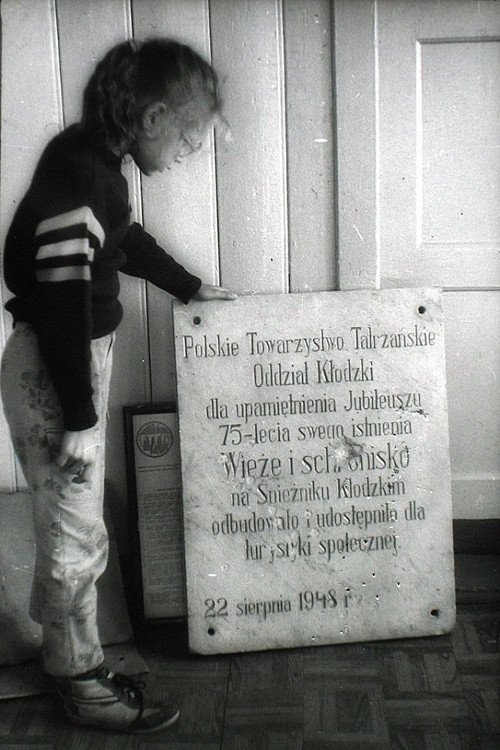 Polskie Towarzystwo Tatrzańskie
Oddział Kłodzki
dla upamiętnienia Jubileuszu
75-lecia swego istnienia
Wieżę i schronisko
na Śnieżniku Kłodzkim
odbudowało i udostępniło dla
turystyki społecznej.
22 sierpnia 1948 r.